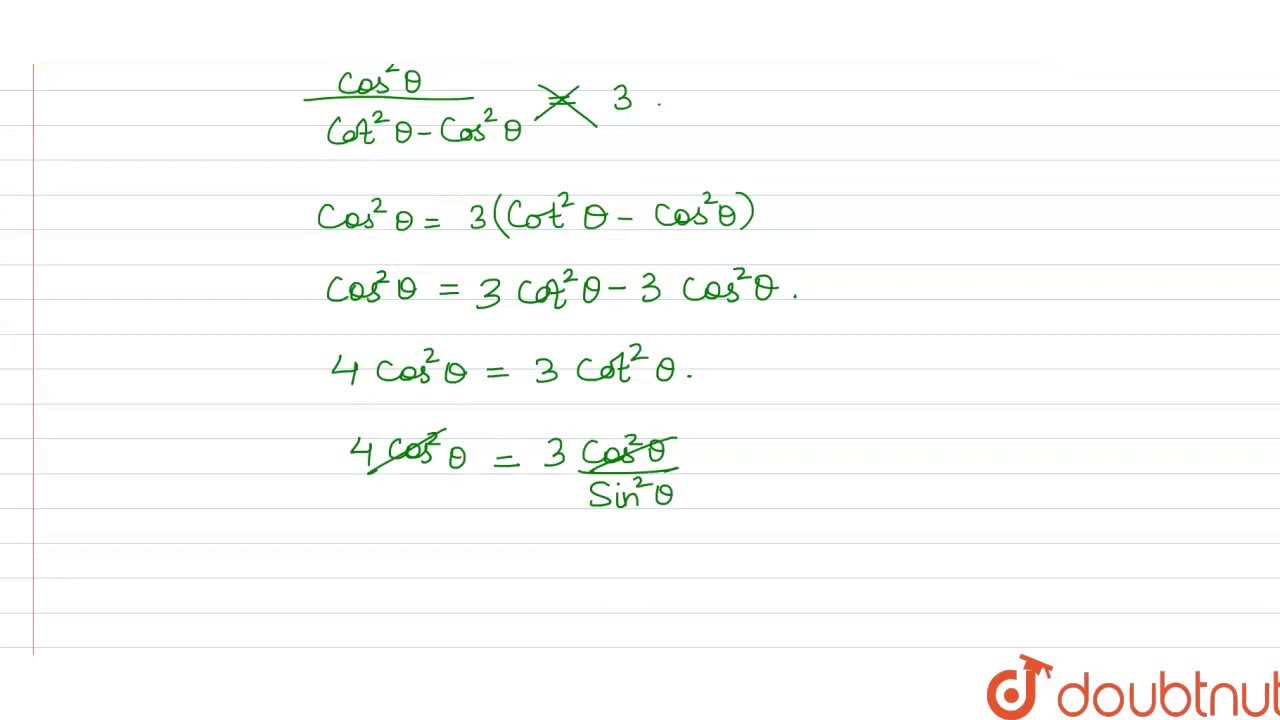 cos²θ
cot²θ - cos²θ = 3 .
cos²θ = 3(cot²θ - cos²θ)
cos²θ = 3 cot²θ - 3 cos²θ.
4 cos²θ = 3 cot²θ.
4 cos²θ = 3 cos²θ
sin²θ
doubtnut